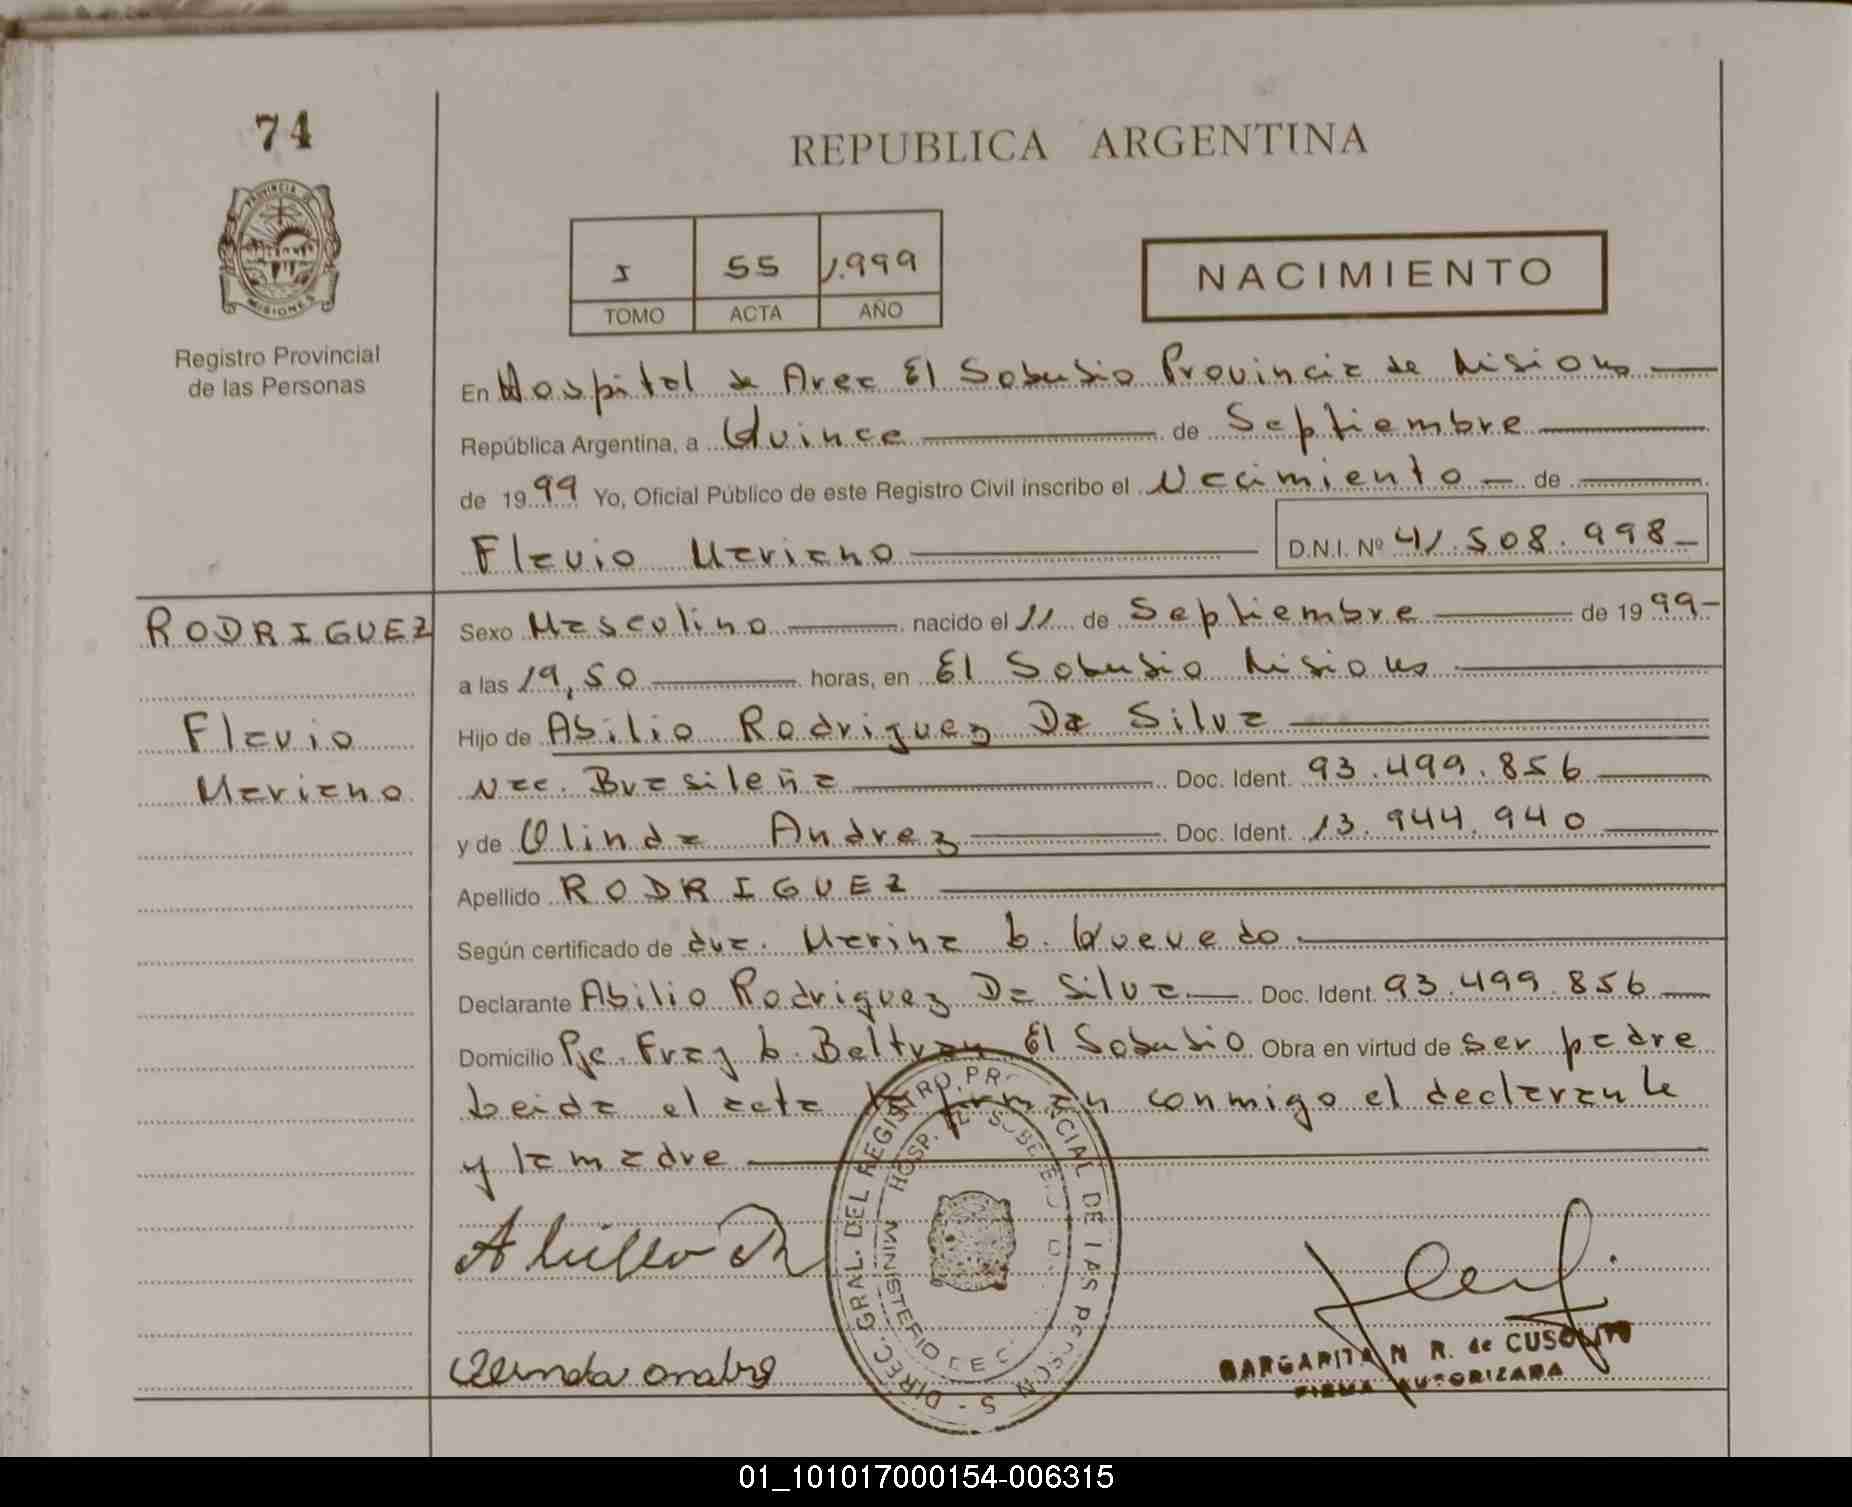 74
PROVINCIA DE
MISIONES
Registro Provincial
de las Personas
REPUBLICA ARGENTINA
I 55 1.999
TOMO ACTA AÑO
NACIMIENTO
En Hospital de Area El Soberbio Provincia de Misiones
República Argentina, a Quince de Septiembre
de 1999 Yo, Oficial Público de este Registro Civil inscribo el Nacimiento de
Flavio Mariano D.N.I. Nº 41.508.998
RODRIGUEZ
Flavio
Mariano
Sexo Masculino nacido el 11 de Septiembre de 1999
a las 19,50 horas, en El Soberbio Misiones
Hijo de Abilio Rodriguez Da Silva
Nac. Brasileña Doc. Ident. 93.499.856
y de Olinda Andrez Doc. Ident. 13.944.940
Apellido RODRIGUEZ
Según certificado de dra. Marina L. Quevedo
Declarante Abilio Rodriguez Da Silva Doc. Ident. 93.499.856
Domicilio Pje. Fray L. Beltran El Soberbio Obra en virtud de ser padre
Leida el acta la firman conmigo el declarante
y la madre
DIREC. GRAL. DEL REGISTRO PROVINCIAL DE LAS PERSONAS
HOSP. EL SOBERBIO
MINISTERIO DE
MARGARITA N R. de CUSOLITO
FIRMA AUTORIZADA
01_101017000154-006315